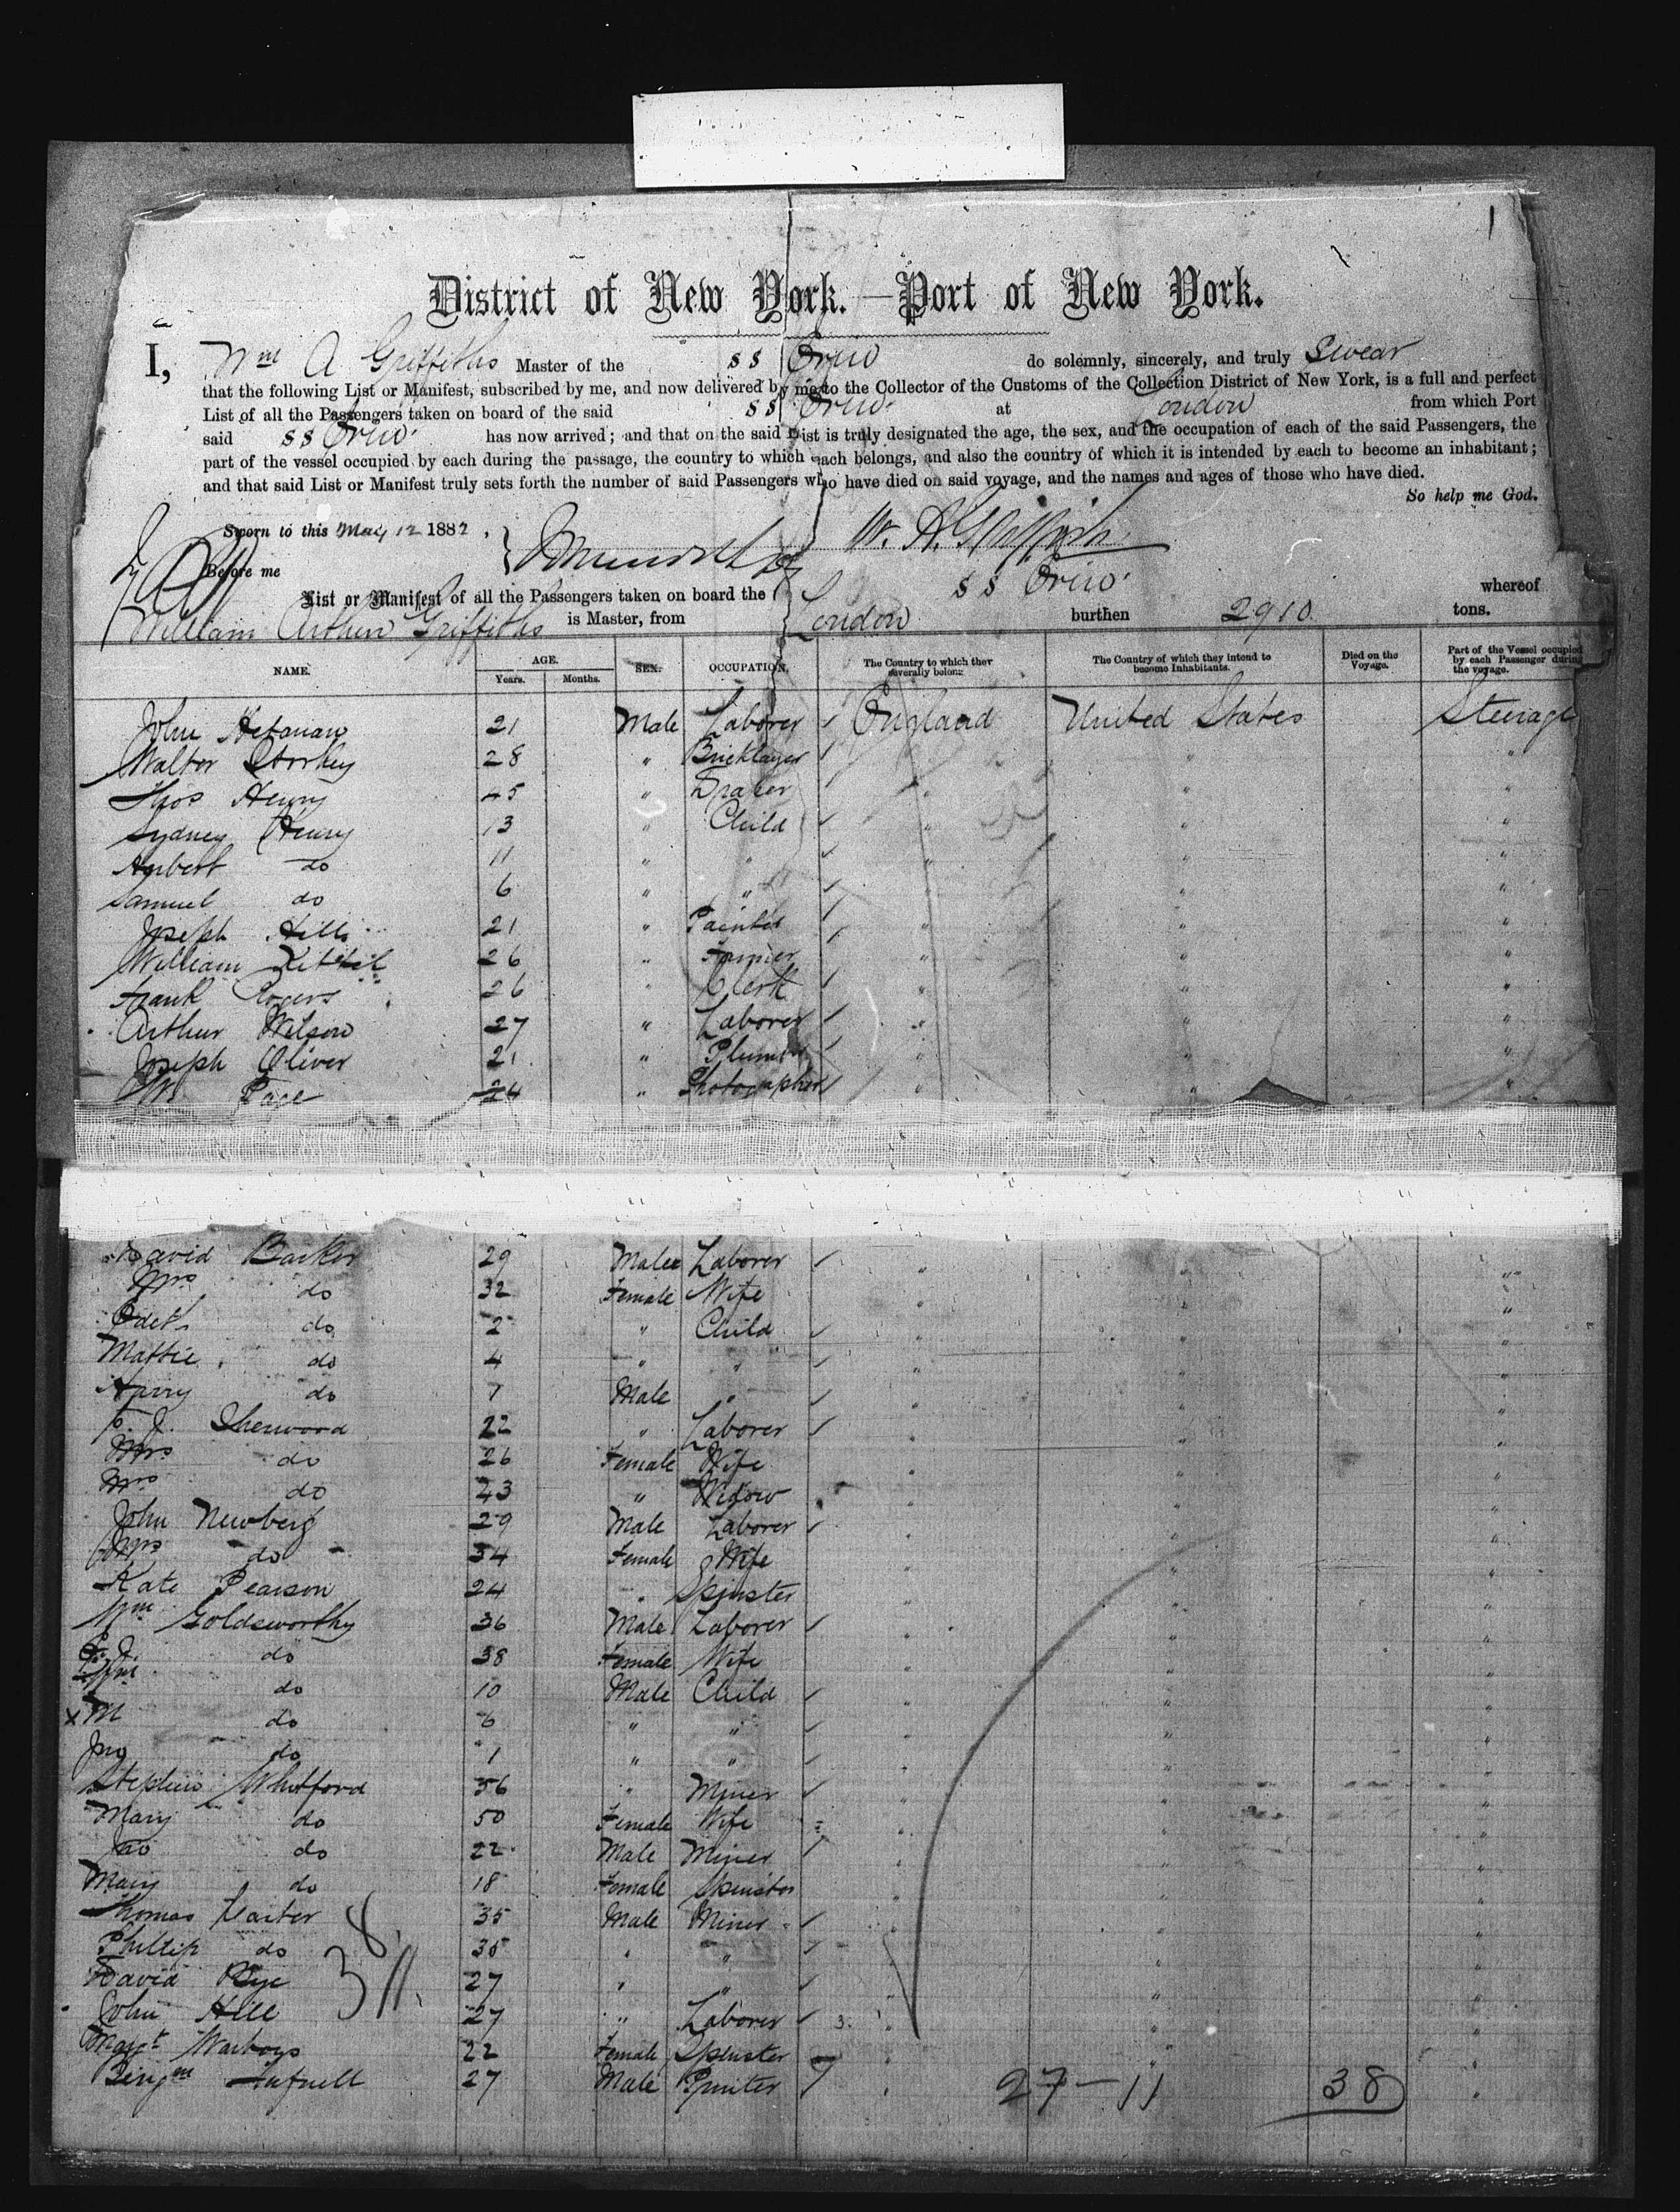 1
District of New York.—Port of New York.
I, Wm A Griffiths Master of the SS Orid do solemnly, sincerely, and truly Swear
that the following List or Manifest, subscribed by me, and now delivered by me to the Collector of the Customs of the Collection District of New York, is a full and perfect
List of all the Passengers taken on board of the said SS at London from which Port
said SS has now arrived; and that on the said List is truly designated the age, the sex, and the occupation of each of the said Passengers, the
part of the vessel occupied by each during the passage, the country to which each belongs, and also the country of which it is intended by each to become an inhabitant;
and that said List or Manifest truly sets forth the number of said Passengers who have died on said voyage, and the names and ages of those who have died.
So help me God.
Sworn to this May 12 1882, W. A. Griffiths
Before me
List or Manifest of all the Passengers taken on board the SS whereof
William Arthur Griffiths is Master, from London burthen 2910 tons.
NAME. AGE. Years. Months. SEX. OCCUPATION. The Country to which they severally belong. The Country of which they intend to become Inhabitants. Died on the Voyage. Part of the Vessel occupied by each Passenger during the voyage.
John 21 Male Laborer England United States Steerage
Walter 28 " Bricklayer " " "
Thos Henry 45 " Draper " " "
Sydney Henry 13 " Child " " "
Hubert do 11 " " " " "
Samuel do 6 " " " " "
Joseph Hills 21 " Painter " " "
William 26 " Farmer " " "
Frank Rogers 26 " Clerk " " "
Arthur Wilson 27 " Laborer " " "
Joseph Oliver 21 " Plumber " " "
W Page 24 " Photographer " " "
David Barker 29 Male Laborer " " "
Mrs do 32 Female Wife " " "
Edith do 2 " Child " " "
Mattie do 4 " " " " "
Harry do 1 Male " " " "
F. J. Sherwood 22 " Laborer " " "
Mrs do 26 Female Wife " " "
Mrs do 43 " Widow " " "
John Newberg 29 Male Laborer " " "
Mrs do 34 Female Wife " " "
Kate Pearson 24 " Spinster " " "
Wm Goldsworthy 36 Male Laborer " " "
do 38 Female Wife " " "
Wm do 10 Male Child " " "
x M do 6 " " " " "
Jno do 1 " " " " "
Stephen Whitford 56 " Miner " " "
Mary do 50 Female Wife " " "
Jno do 22 Male Miner " " "
Mary do 18 Female Spinster " " "
Thomas Carter 35 Male Miner " " "
Phillip do 35 " " " " "
David Rye 27 " " " " "
38 11
John Hill 27 " Laborer " " "
Margt Warboys 22 Female Spinster " " "
Benjm Tufnell 27 Male Printer " 27–11 38 "